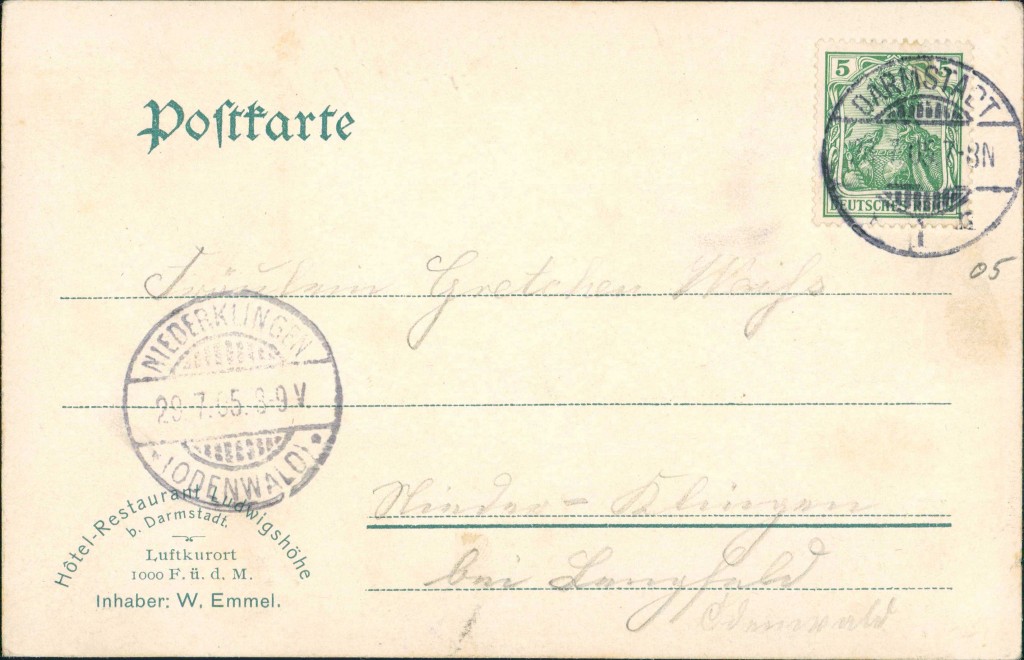 Postkarte
5 5
DEUTSCHES REICH
DARMSTADT
05. 7-8N
1
05
Fräulein Gretchen Weiß
NIEDERKLINGEN
28.7.05. 8-9V.
(ODENWALD)
Nieder-Klingen
bei Lengfeld
Odenwald
Hôtel-Restaurant Ludwigshöhe
b. Darmstadt.
Luftkurort
1000 F. ü. d. M.
Inhaber: W. Emmel.